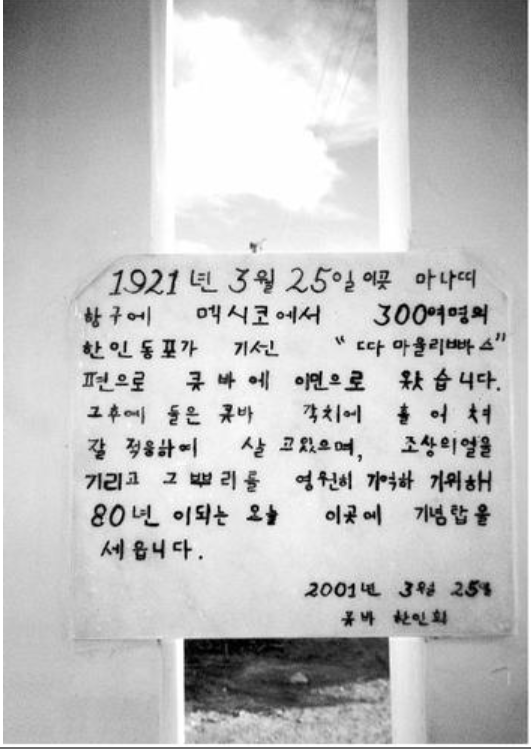 1921 년 3월 25일 이곳 마나띠
항구에 멕시코에서 300여명의
한인동포가 기선 “따마울리빠스”
편으로 쿠바에 이민으로 왔습니다.
그후에 들은 쿠바 각치에 흘어쳐
잘 적응하여 살고있으며, 조상의얼을
기리고 그 뿌리를 영원히 기억하 기위하H
80년 이되는 오늘 이곳에 기념탑을
세웁니다.
2001년 3월 25일
쿠바 한인회